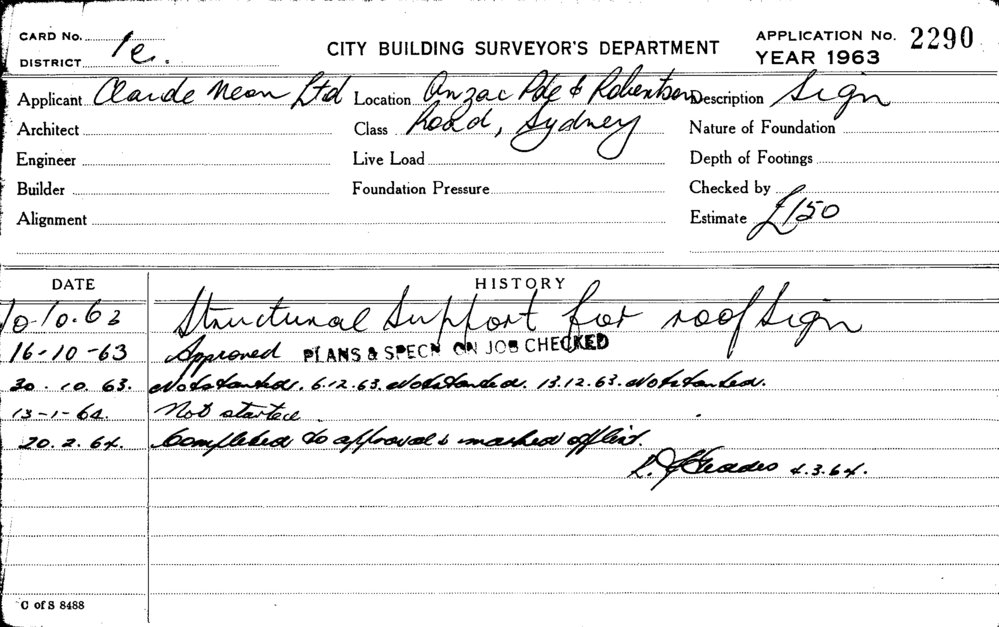 CARD No.
DISTRICT 1e.
CITY BUILDING SURVEYOR'S DEPARTMENT
APPLICATION No. 2290
YEAR 1963
Applicant Claude Neon Ltd Location Anzac Pde & Robertson Description Sign
Architect Class Road, Sydney Nature of Foundation
Engineer Live Load Depth of Footings
Builder Foundation Pressure Checked by
Alignment Estimate £150
DATE HISTORY
10-10-63 Structural Support for roof sign
16-10-63 Approved PLANS & SPECN ON JOB CHECKED
30.10.63. Not started. 6.12.63. Not started. 13.12.63. Not started.
13-1-64. Not started.
20.2.64. Completed to approval & marked off list.
4.3.64.
C of S 8488